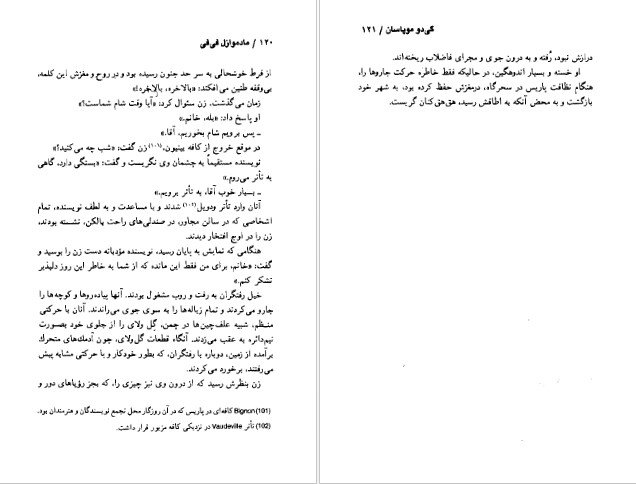 ۱۲۰ / مادموازل فی‌فی
از فرط خوشحالی به سر حد جنون رسیده بود و در روح و مغزش این کلمه،
بی‌وقفه طنین می‌افکند: «بالاخره، بالاخره!»
زمان می‌گذشت. زن سئوال کرد: «آیا وقت شام شماست؟»
او پاسخ داد: «بله، خانم.»
ـ پس برویم شام بخوریم، آقا.»
در موقع خروج از کافه بینیون،(۱۰۱) زن گفت: «شب چه می‌کنید؟»
نویسنده مستقیماً به چشمان وی نگریست و گفت: «بستگی دارد، گاهی
به تأتر می‌روم.»
ـ بسیار خوب آقا، به تأتر برویم.»
آنان وارد تأتر ودویل(۱۰۲) شدند و با مساعدت و به لطف نویسنده، تمام
اشخاصی که در سالن مجاور، در صندلی‌های راحت بالکن، نشسته بودند،
زن را در اوج افتخار دیدند.
هنگامی که نمایش به پایان رسید، نویسنده مؤدبانه دست زن را بوسید و
گفت: «خانم، برای من فقط این مانده که از شما به خاطر این روز دلپذیر
تشکر کنم.»
خیل رفتگران به رفت و روب مشغول بودند. آنها پیاده‌روها و کوچه‌ها را
جارو می‌کردند و تمام زباله‌ها را به سوی جوی می‌راندند. آنان با حرکتی
منظم، شبیه علف‌چین‌ها در چمن، گل ولای را از جلوی خود بصورت
نیم‌دائره به عقب می‌زدند. آنگاه قطعات گل‌ولای، چون آدمک‌های متحرک
برآمده از زمین، دوباره با رفتگران، که بطور خودکار و با حرکتی مشابه پیش
می‌رفتند، برخورد می‌کردند.
زن بنظرش رسید که از درون وی نیز چیزی را، که بجز رؤیاهای دور و
(101) Bignon کافه‌ای در پاریس که در آن روزگار محل تجمع نویسندگان و هنرمندان بود.
(102) تأتر Vaudeville در نزدیکی کافه مزبور قرار داشت.
گی‌دو موپاسان / ۱۲۱
درازش نبود، رُفته و به درون جوی و مجرای فاضلاب ریخته‌اند.
او خسته و بسیار اندوهگین، در حالیکه فقط خاطره حرکت جاروها را،
هنگام نظافت پاریس در سحرگاه، درمغزش حفظ کرده بود، به شهر خود
بازگشت و به محض آنکه به اطاقش رسید، هق‌هق‌کنان گریست.